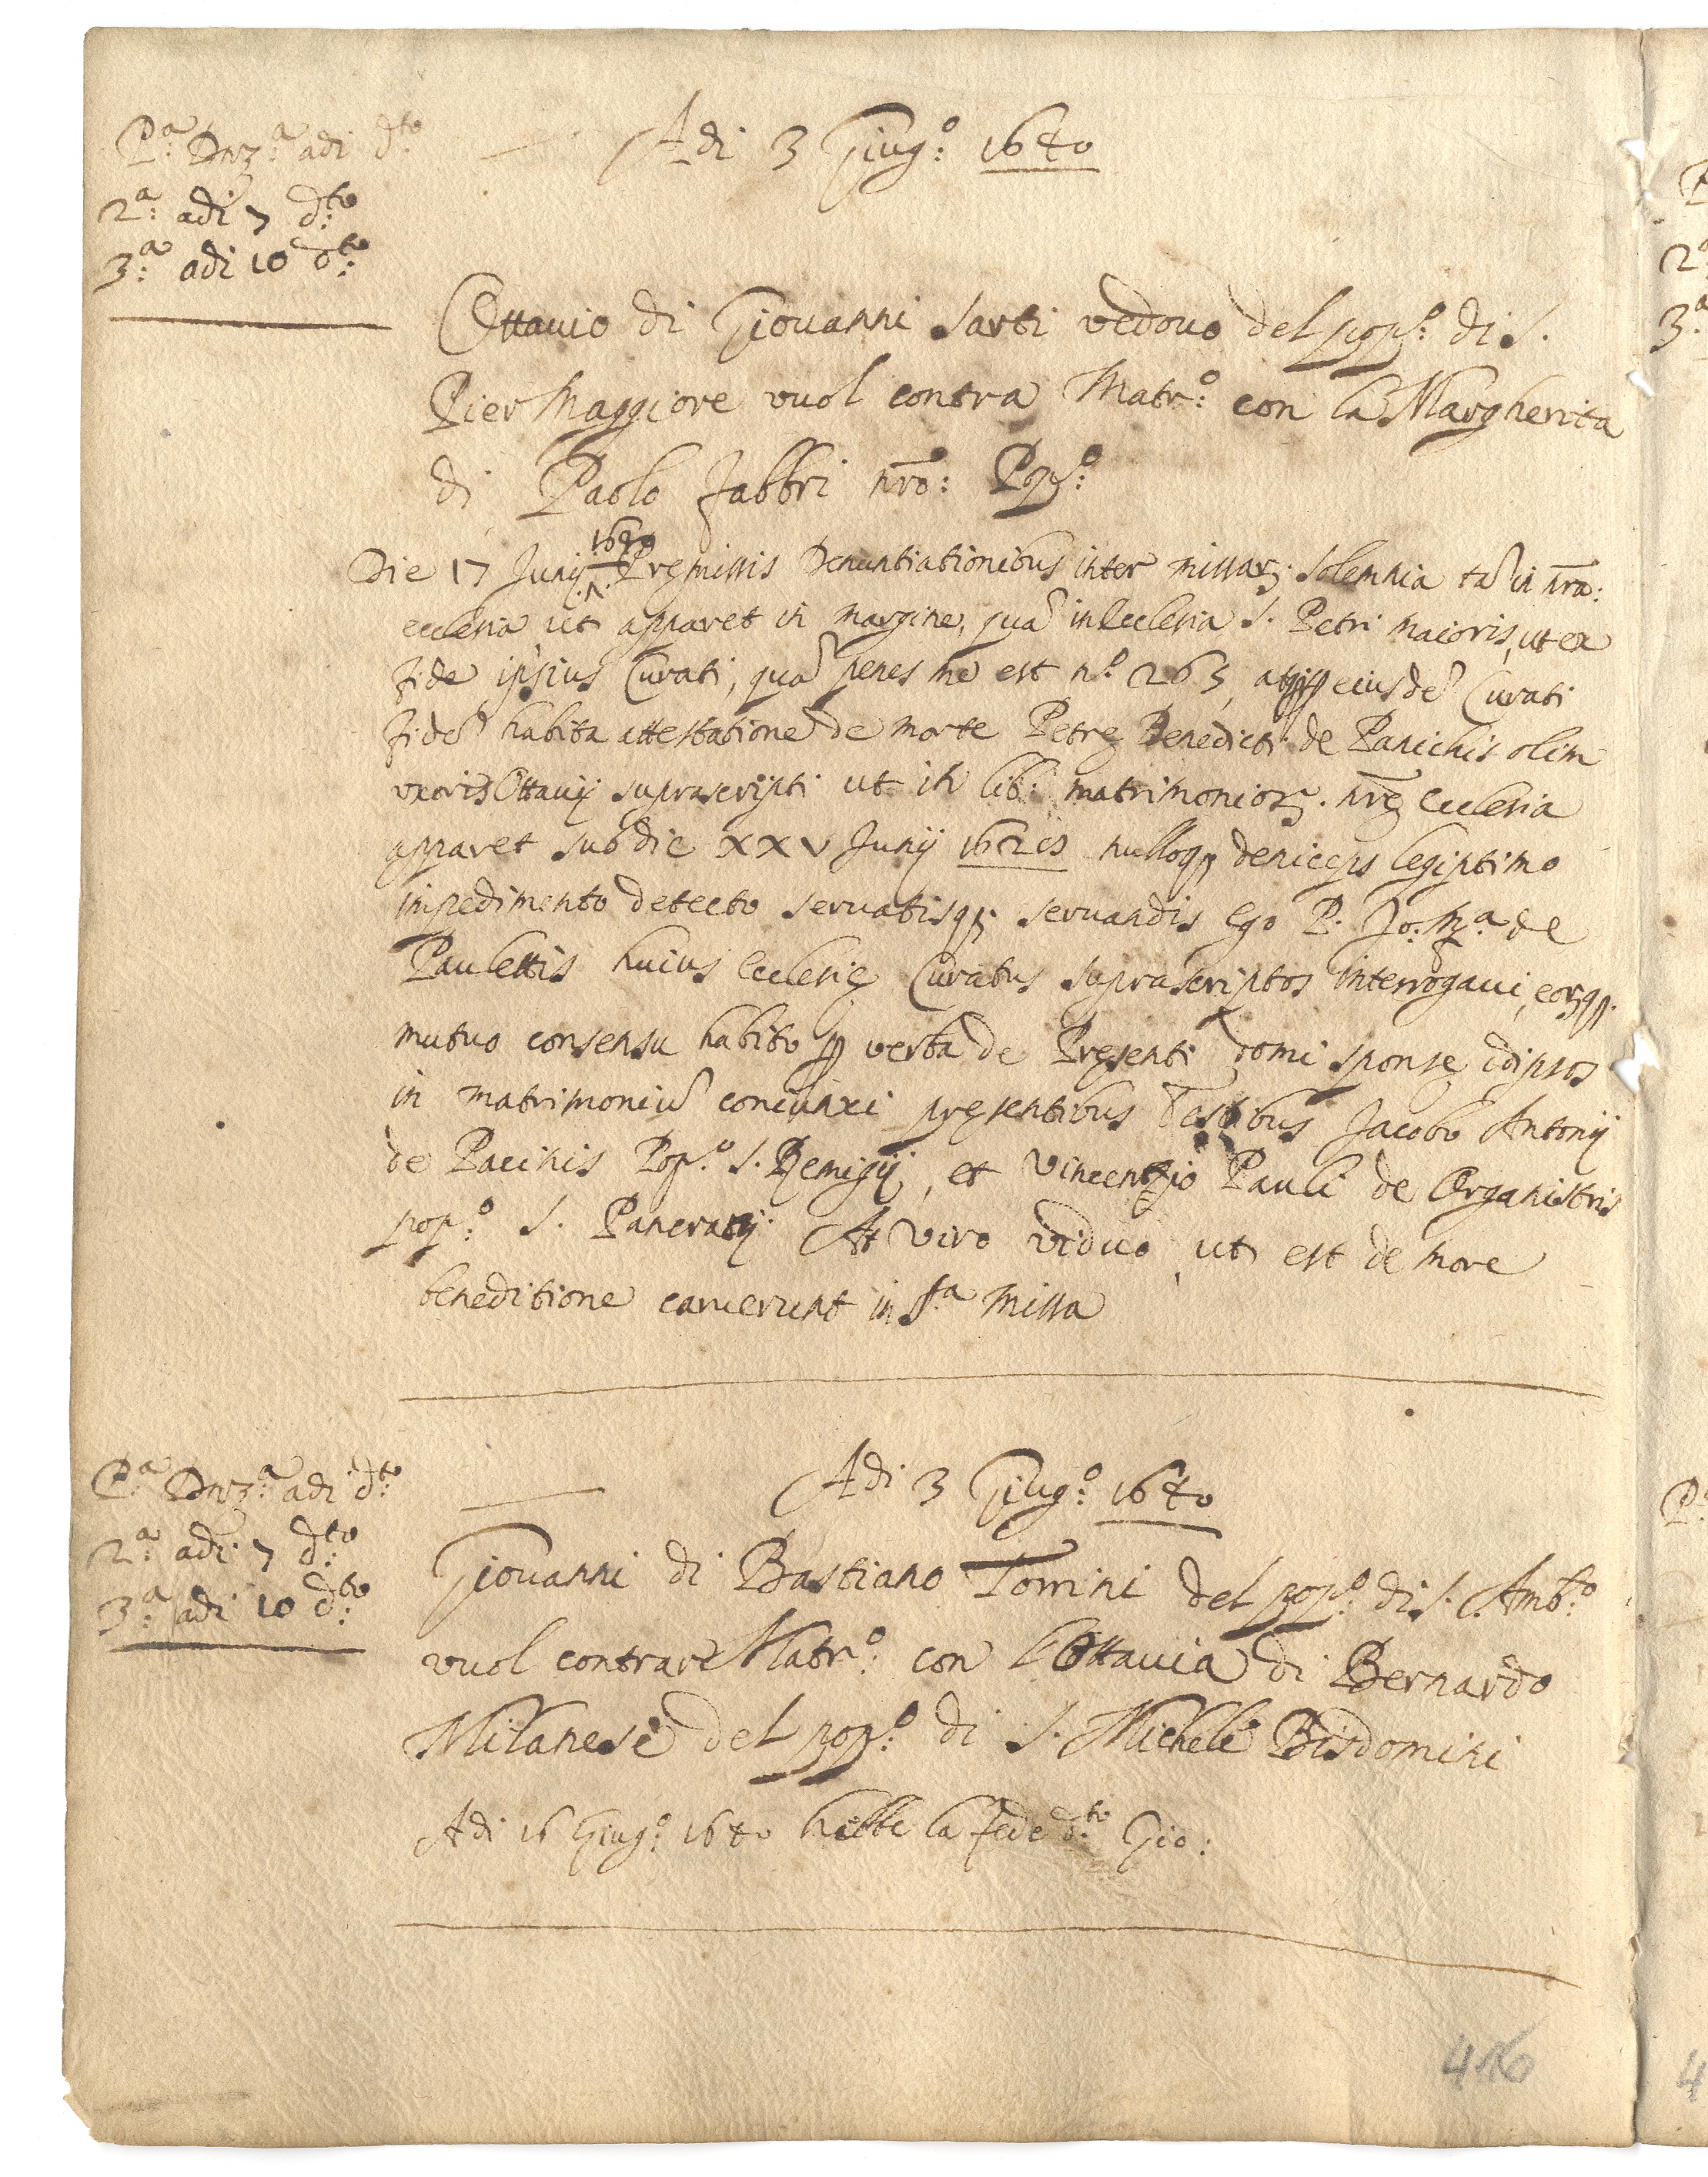 Pª: Dnzª: adi dto:
2ª: adi 7 dto:
3ª: adi 10 dto:
Adi 3 Giugº: 1640
Ottauio di Giouanni Sarti vedouo del popº: di S.
Pier Maggiore vuol contra Matrº: con la Margherita
di Paolo Fabbri nro: Popº:
Die 17 Junij 1640 Premissis Denuntiationibus inter missarz: solemnia ta in nra:
ecclesia ut apparet in margine, qua in Ecclesia S. Petri maioris, ut ex
fide ipsius Curati, qua penes me est nº 263, eiusde Curati
fide habita attestatione de morte Petre Benedicti de Panichis olim
uxoris Ottauij suprascripti ut in lib: matrimonior. nre Ecclesia
apparet sub die XXV Junij nulloq; legiptimo
impedimento detecto seruatisq; seruandis Ego P. Jo: de
Paulettis huius Ecclesie Curatus suprascriptos interrogaui, eorq;
mutuo consensu habito p verba de Presenti domi sponse
in matrimoniu coniunxi presentibus Testibus Jacobo Antonij
de Pacinis Popº: S. Remigij, et Vincentio Pauli de Organistris
popº: S. Pancratij. At viro viduo, ut est de more
beneditione caruerunt in missa
Pª: Dnzª: adi dto:
2ª: adi 7 dto:
3ª: adi 10 dto:
Adi 3 Giugº: 1640
Giouanni di Bastiano Tomini del popº: di S. Ambº:
vuol contrare Matrº: con l'Ottauia di Bernardo
Milanesi del popº: di S. Michele Bisdomini
Adi 16 Giugº: 1640 hebbe la fede dto: Gio:
416